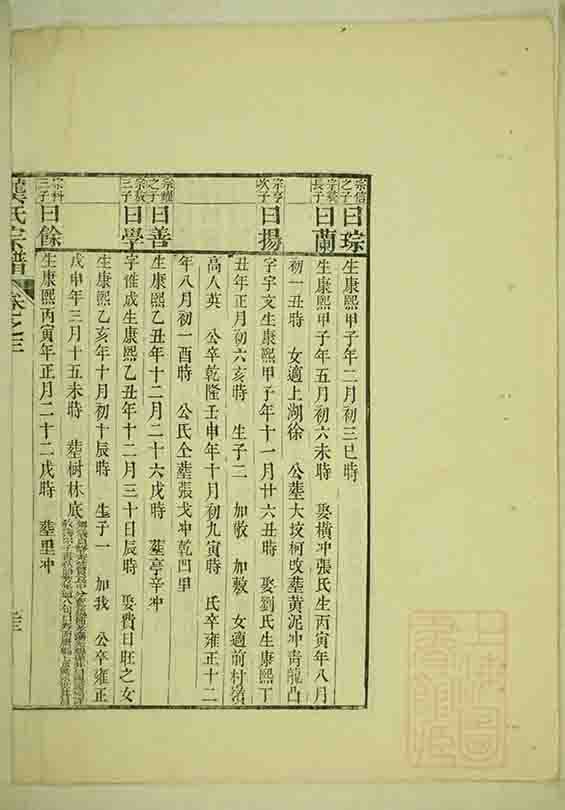 宗信之子
曰琮
生康熙甲子年二月初三巳時
長子
曰蘭
生康熙甲子年五月初六未時 娶橫冲張氏生丙寅年八月
初一丑時 女適上湖徐 公塟大坟柯攺塟黄泥冲青龍凸
宗亨次子
曰揚
字宇文生康熙甲子年十一月廿六丑時 娶劉氏生康熙丁
丑年正月初六亥時 生子二 加敬 加敷 女適前村
高人英 公卒乾隆壬申年十月初九寅時 氏卒雍正十二
年八月初一酉時 公氏仝塟張戈冲乾凹里
宗
之子
曰善
生康熙乙丑年十二月二十六戌時 塟亭辛冲
宗
三子
曰學
字惟成生康熙乙丑年十二月三十日辰時 娶費日旺之女
生康熙乙亥年十月初十辰時 生子一 加我 公卒雍正
戊申年三月十五未時 塟树林底
宗科三子
曰餘
生康熙丙寅年正月二十二戌時 塟里冲
氏宗譜
卷之三